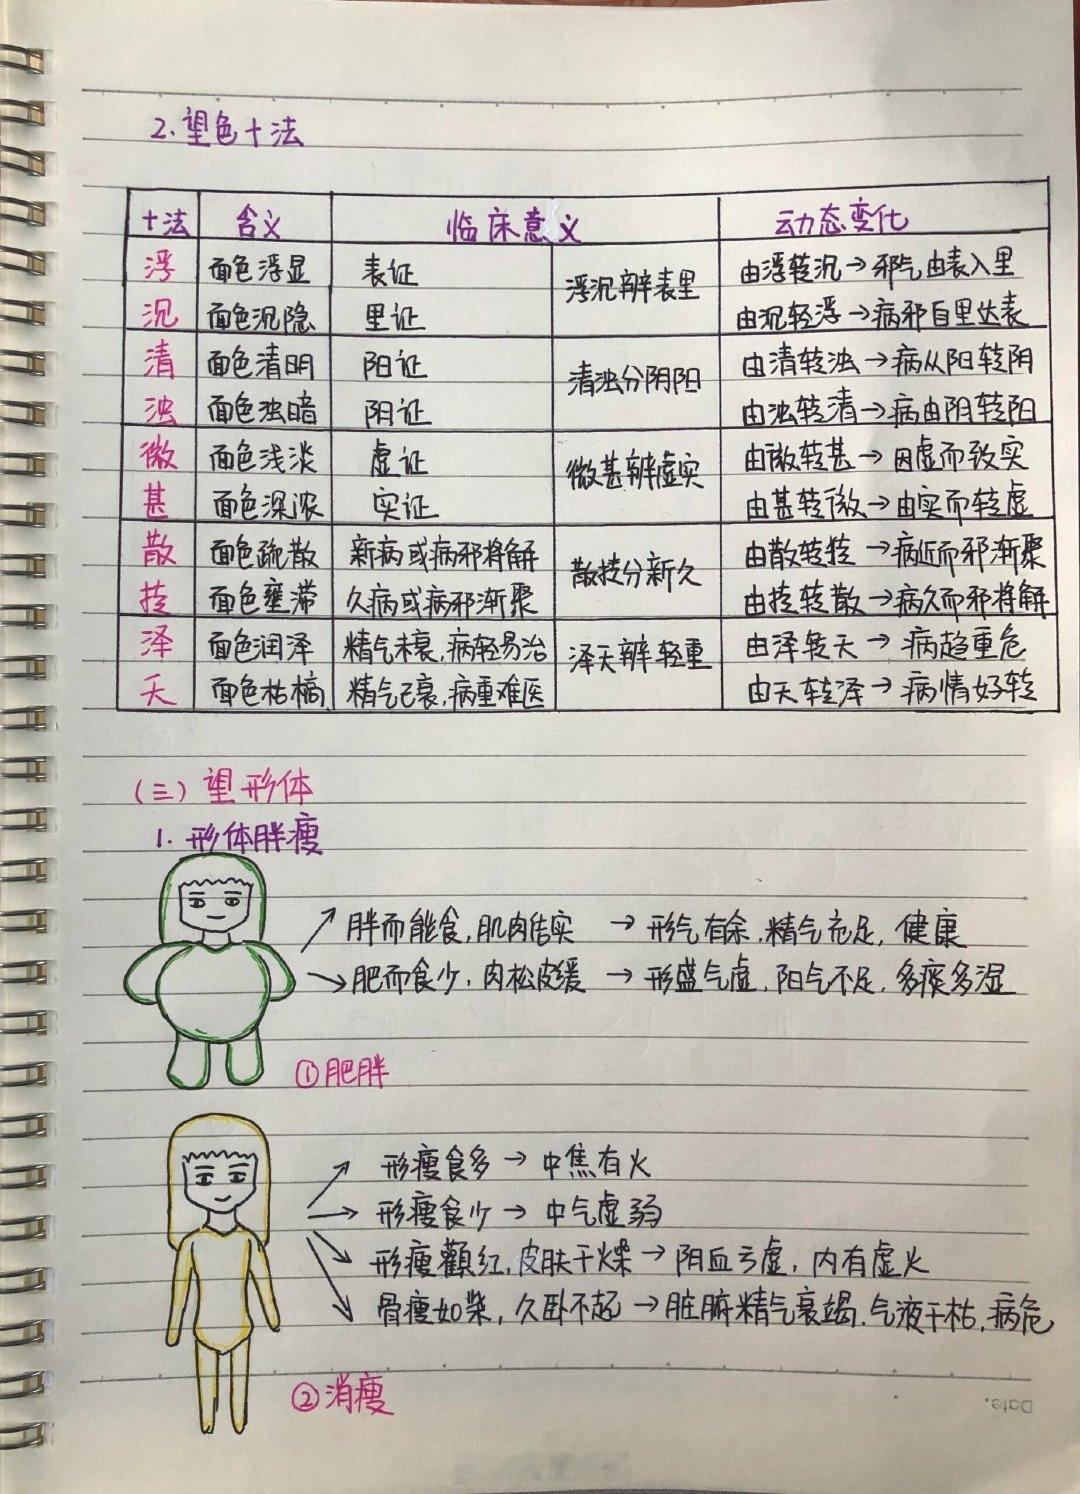 2.望色十法
十法 含义 临床意义 动态变化
浮 面色浮显 表证 浮沉辨表里 由浮转沉→邪气由表入里
沉 面色沉隐 里证 由沉轻浮→病邪自里达表
清 面色清明 阳证 清浊分阴阳 由清转浊→病从阳转阴
浊 面色浊暗 阴证 由浊转清→病由阴转阳
微 面色浅淡 虚证 微甚辨虚实 由微转甚→因虚而致实
甚 面色深浓 实证 由甚转微→由实而转虚
散 面色疏散 新病或病邪将解 散抟分新久 由散转抟→病近而邪渐聚
抟 面色壅滞 久病或病邪渐聚 由抟转散→病久而邪将解
泽 面色润泽 精气未衰,病轻易治 泽夭辨轻重 由泽转夭→病趋重危
夭 面色枯槁 精气已衰,病重难医 由夭转泽→病情好转
(三)望形体
1.形体胖瘦
胖而能食,肌肉结实→形气有余,精气充足,健康
肥而食少,肉松皮缓→形盛气虚,阳气不足,多痰多湿
①肥胖
形瘦食多→中焦有火
形瘦食少→中气虚弱
形瘦颧红,皮肤干燥→阴血亏虚,内有虚火
骨瘦如柴,久卧不起→脏腑精气衰竭,气液干枯,病危
②消瘦
Date.